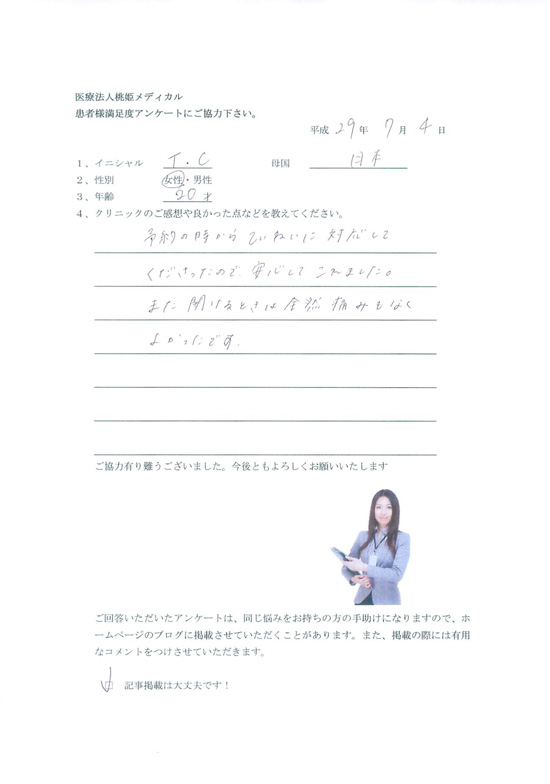 医療法人桃姫メディカル
患者様満足度アンケートにご協力下さい。
平成 29年 7月 4日
1、イニシャル T.C 母国 日本
2、性別 女性・男性
3、年齢 20才
4、クリニックのご感想や良かった点などを教えてください。
予約の時からていねいに対応して
くださったので、安心してこれました。
また開けるときは全然痛みもなく
よかったです。
ご協力有り難うございました。今後ともよろしくお願いいたします
ご回答いただいたアンケートは、同じ悩みをお持ちの方の手助けになりますので、ホ
ームページのブログに掲載させていただくことがあります。また、掲載の際には有用
なコメントをつけさせていただきます。
記事掲載は大丈夫です！